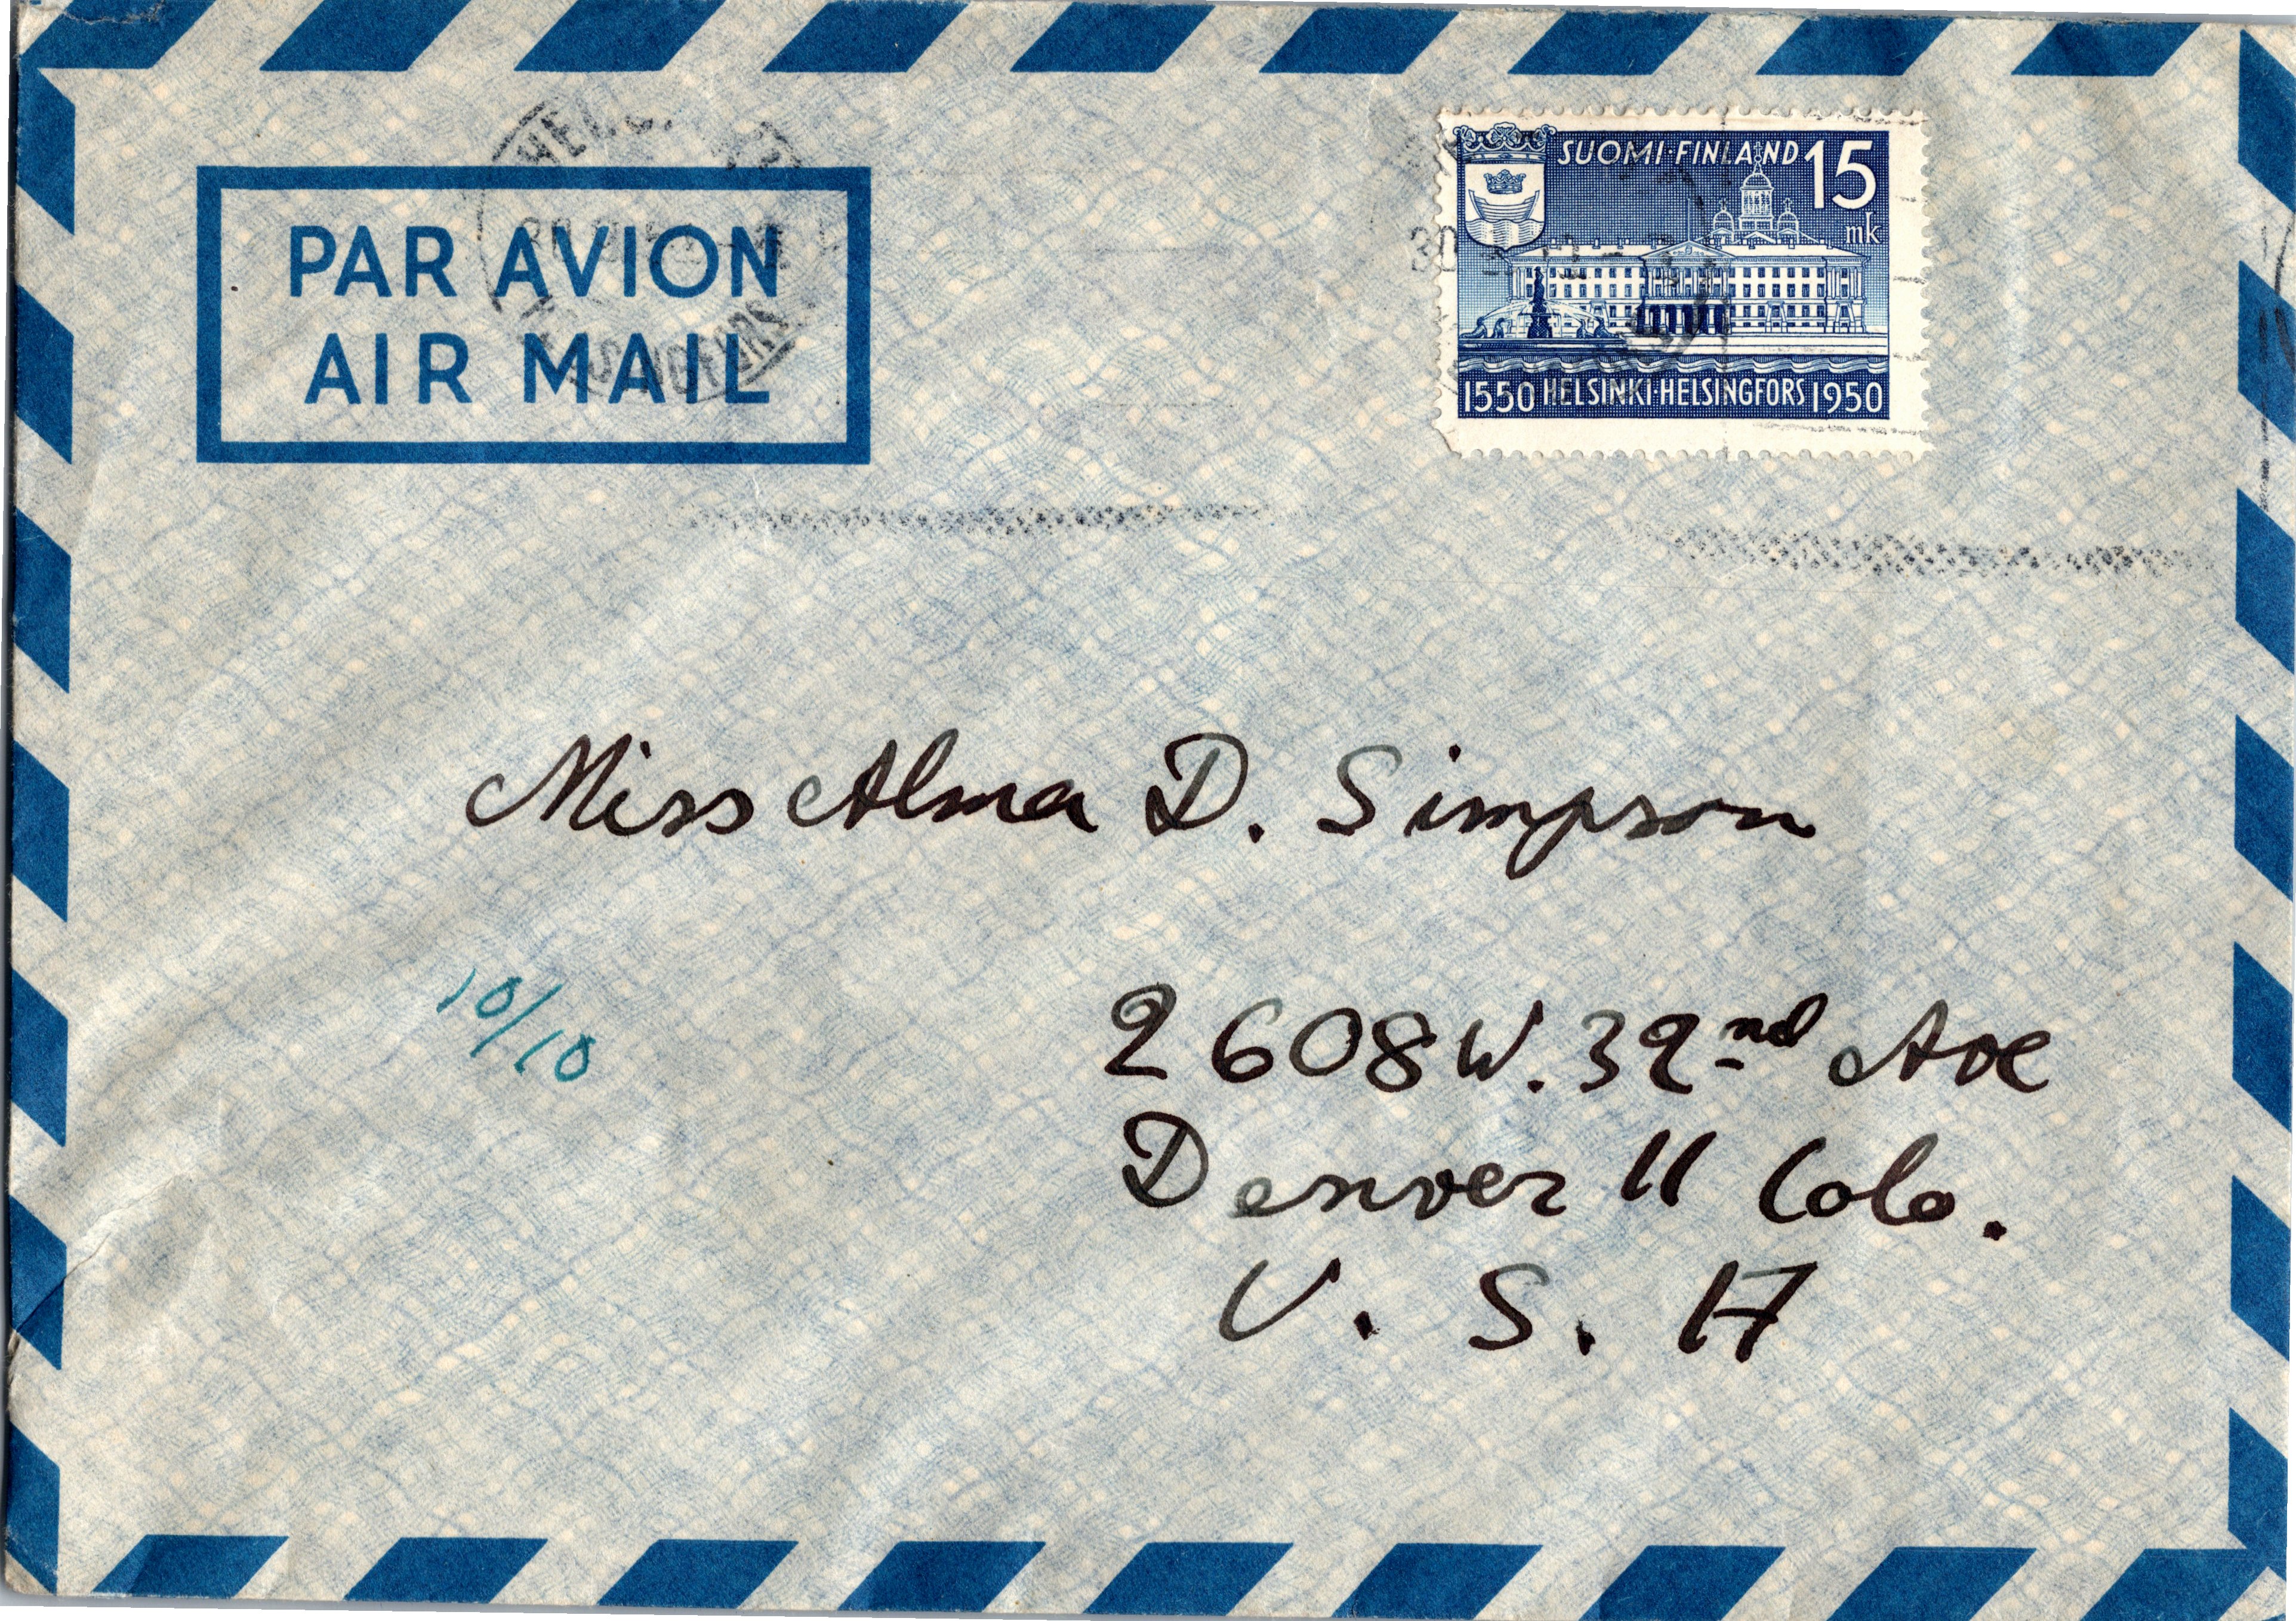 SUOMI·FINLAND 15
mk
1550 HELSINKI·HELSINGFORS 1950
PAR AVION
AIR MAIL
HELSINGFORS
30
Miss Alma D. Simpson
10/10
2608 W. 32nd Ave
Denver 11 Colo.
U. S. A